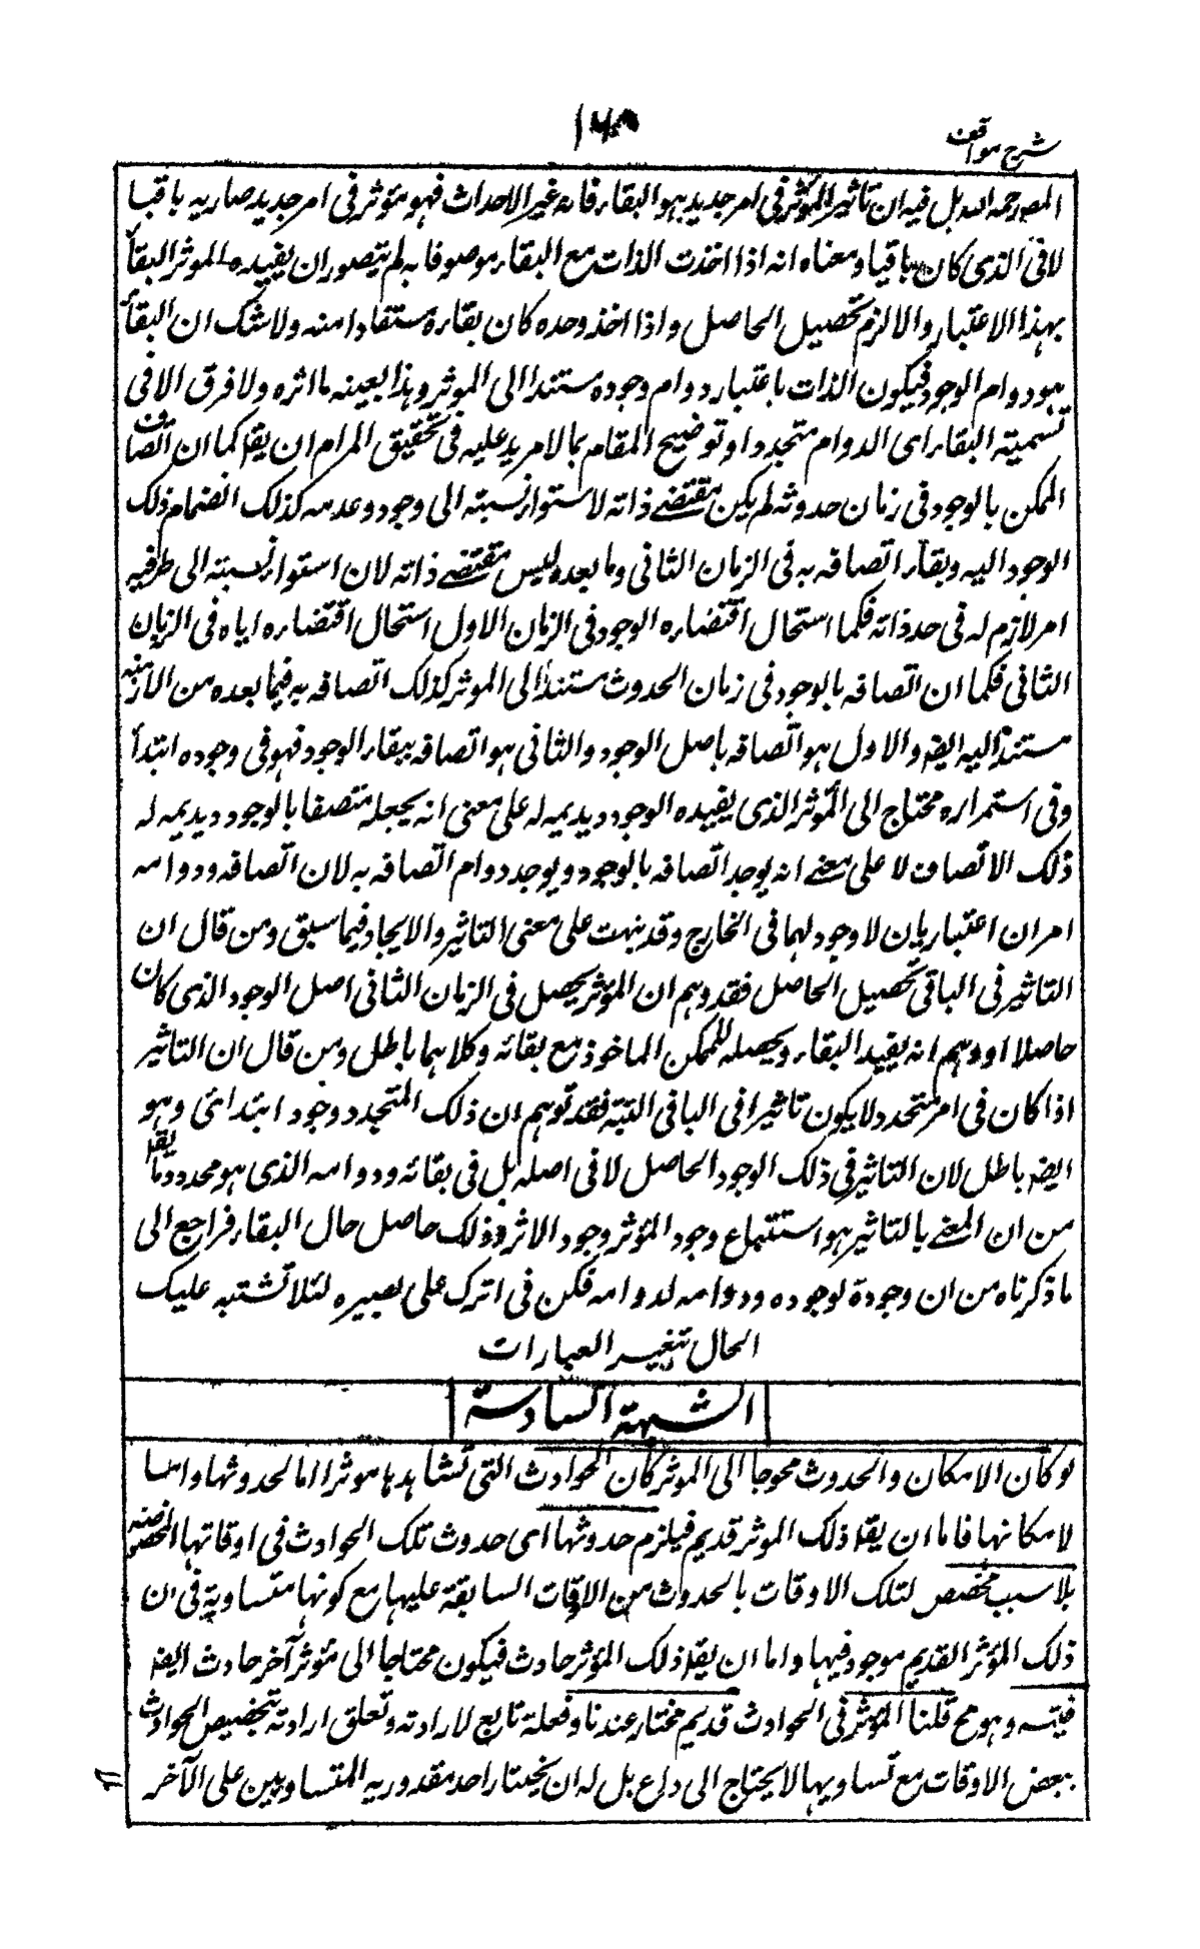 شرح مواقف
المص رحمه الله بل فيه ان تاثير المؤثر فى امر جديد هو البقاء فانه غير الاحداث فهو مؤثر فى امر جديد صار به باقيا
لا فى الذى كان باقيا ومعناه انه اذا اخذت الذات مع البقاء موصوفا به لم يتصور ان يفيده الموثر البقاء
بهذا الاعتبار والا لزم تحصيل الحاصل واذا اخذ وحده كان بقاءه مستفادا منه ولا شك ان البقاء
هو دوام الوجود فيكون الذات باعتبار دوام وجوده مستندا الى الموثر وهذا بعينه ما اثره ولا فرق الا فى
تسمية البقاء اى الدوام متجددا وتوضيح المقام بما لا مزيد عليه فى تحقيق المرام ان يقا كما ان اتصاف
الممكن بالوجود فى زمان حدوثه لم يكن مقتضے ذاته لاستواء نسبته الى وجود وعدمه كذلك انضمام ذلك
الوجود اليه وبقاء اتصافه به فى الزمان الثانى وما بعده ليس مقتضے ذاته لان استواء نسبته الى طرفيه
امر لازم له فى حد ذاته فكما استحال اقتضاءه الوجود فى الزمان الاول استحال اقتضاءه اياه فى الزمان
الثانى فكما ان اتصافه بالوجود فى زمان الحدوث مستندا الى الموثر كذلك اتصافه به فيما بعده من الازمنه
مستند اليه ايضه والاول هو اتصافه باصل الوجود والثانى هو اتصافه ببقاء الوجود فهو فى وجوده ابتدأ
وفى استمراره محتاج الى المؤثر الذى يفيده الوجود ويديمه له على معنى انه يجعله متصفا بالوجود ويديمه له
ذلك الاتصاف لا على معنے انه يوجد اتصافه بالوجود ويوجد دوام اتصافه به لان اتصافه ودوامه
امران اعتباريان لا وجود لهما فى الخارج وقد نبهت على معنى التاثير والايجاد فيما سبق ومن قال ان
التاثير فى الباقى تحصيل الحاصل فقد وهم ان المؤثر يحصل فى الزمان الثانى اصل الوجود الذى كان
حاصلا او وهم انه يفيد البقاء ويحصله للممكن الماخوذ مع بقائه وكلاهما باطل ومن قال ان التاثير
اذا كان فى امر متجدد لا يكون تاثيرا فى الباقى البتة فقد توهم ان ذلك المتجدد وجود ابتدائى وهو
ايضه باطل لان التاثير فى ذلك الوجود الحاصل لا فى اصله بل فى بقائه ودوامه الذى هو محدود وما يقا
من ان المعنے بالتاثير هو استتباع وجود المؤثر وجود الاثر وذلك حاصل حال البقاء فراجع الى
ما ذكرناه من ان وجوده لوجوده ودوامه لدوامه فكن فى اترك على بصيره لئلا تشتبه عليك
الحال بتغيير العبارات
الشبهة السادسة
لو كان الامكان والحدوث محوجا الى الموثر كان الحوادث التى نشاهدها موثر اما لحدوثها واما
لامكانها فاما ان يقا ذلك الموثر قديم فيلزم حدوثها اى حدوث تلك الحوادث فى اوقاتها المخصوصه
بلا سبب مخصص لتلك الاوقات بالحدوث من الاوقات السابقة عليها مع كونها متساوية فى ان
ذلك المؤثر القديم موجود فيها واما ان يقا ذلك المؤثر حادث فيكون محتاجا الى مؤثر آخر حادث ايضه
فيتسه وهو مح قلنا المؤثر فى الحوادث قديم مختار عندنا وفعله تابع لارادته وتعلق ارادته بتخصيص الحوادث
ببعض الاوقات مع تساويها لا يحتاج الى داع بل له ان يختار احد مقدوريه المتساويين على الآخر